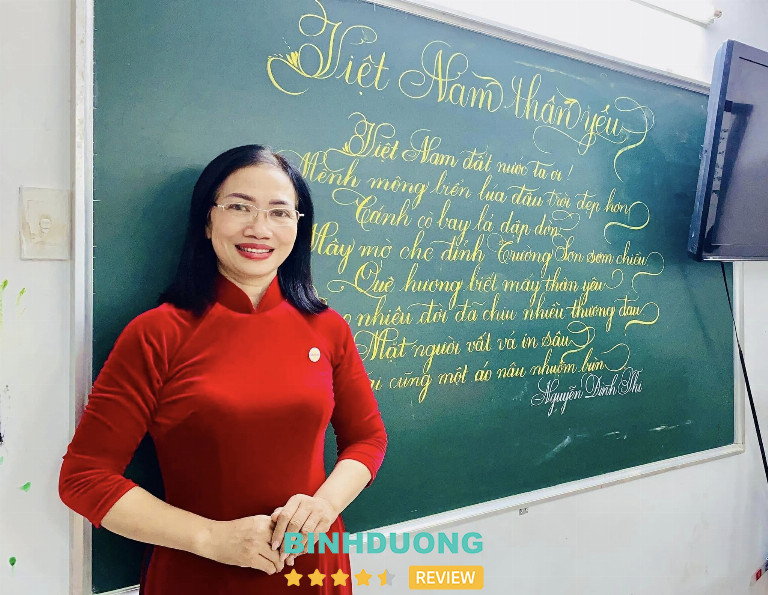 Việt Nam thân yêu
Việt Nam đất nước ta ơi!
Mênh mông biển lúa đâu trời đẹp hơn
Cánh cò bay lả dập dờn
Mây mờ che đỉnh Trường Sơn sớm chiều
Quê hương biết mấy thân yêu
nhiêu đời đã chịu nhiều thương đau
Mặt người vất vả in sâu
cũng một áo nâu nhuộm bùn
Nguyễn Đình Thi
BINHDUONG
REVIEW